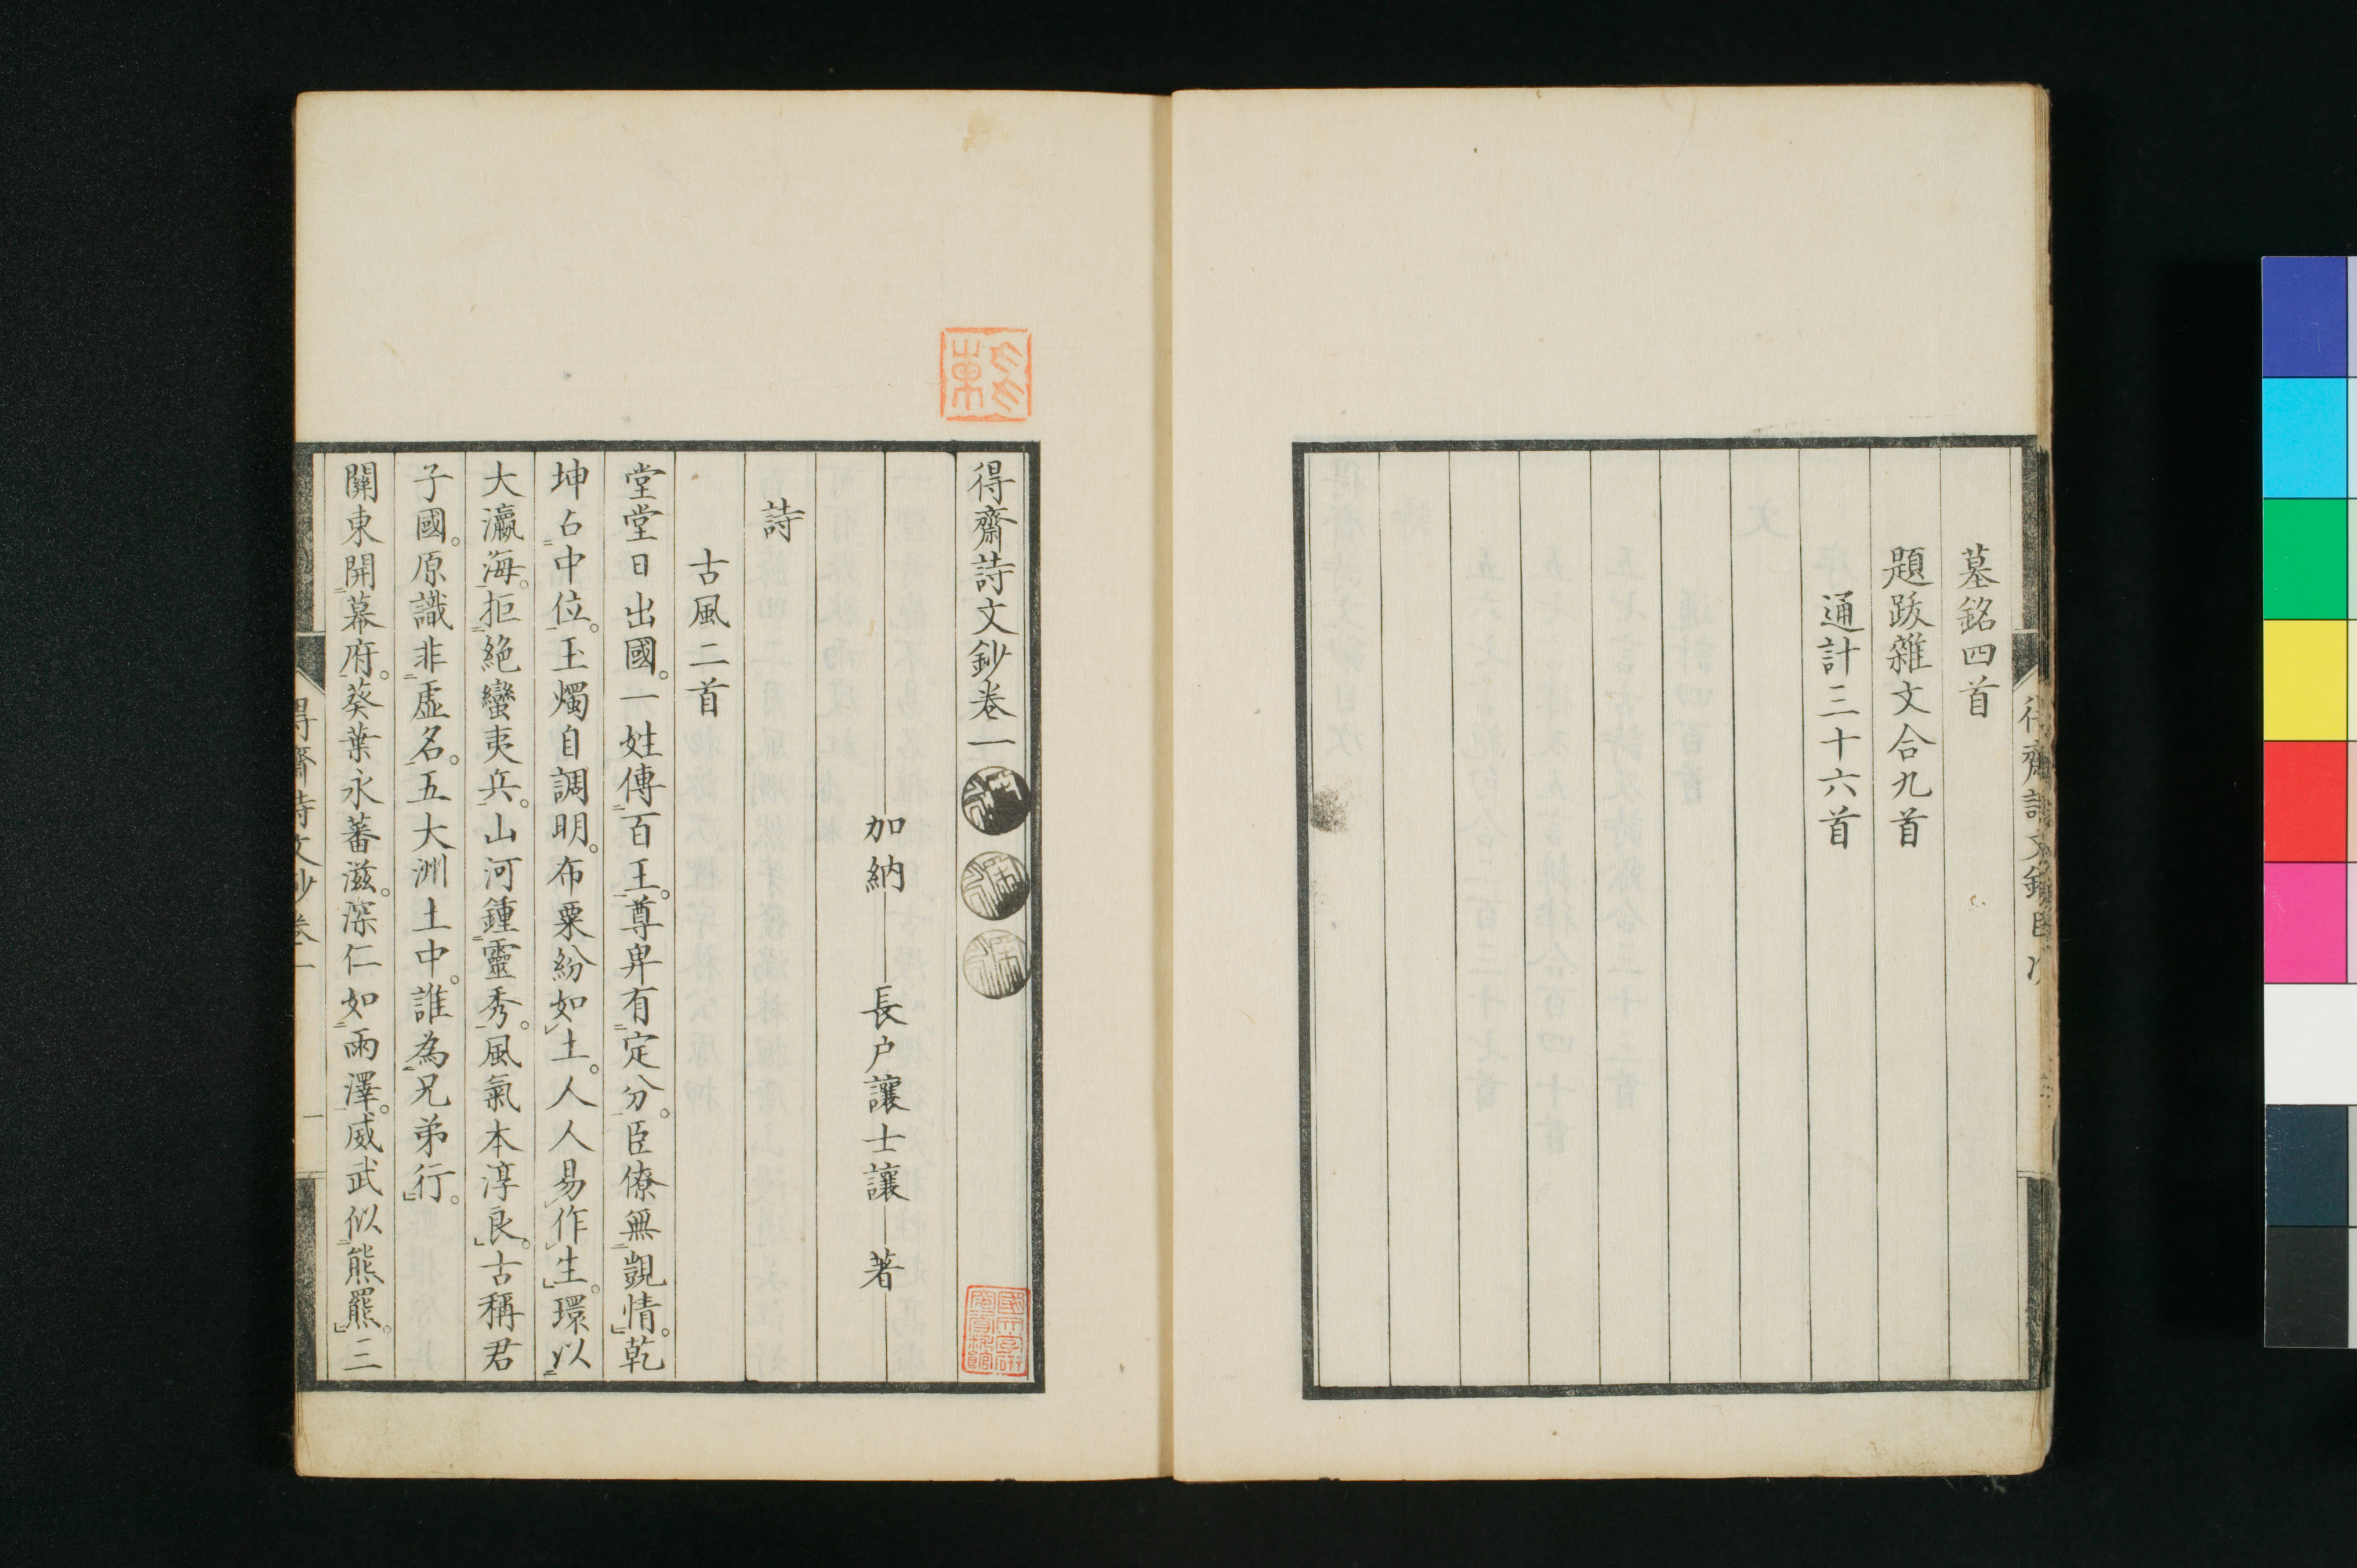 墓銘四首
題跋雜文合九首
通計三十六首
得齋詩文鈔目次
得齋詩文鈔卷一
加納 長户讓士讓 著
詩
古風二首
堂堂日出國。一姓傳百王。尊卑有定分。臣僚無覬情。乾
坤占中位。玉燭自調明。布粟紛如土。人人易作生。環以
大瀛海。拒絶蠻夷兵。山河鍾靈秀。風氣本淳良。古稱君
子國。原識非虛名。五大洲土中。誰為兄弟行。
關東開幕府。葵葉永蕃滋。深仁如雨澤。威武似熊羆。三
得齋詩文鈔卷一
一